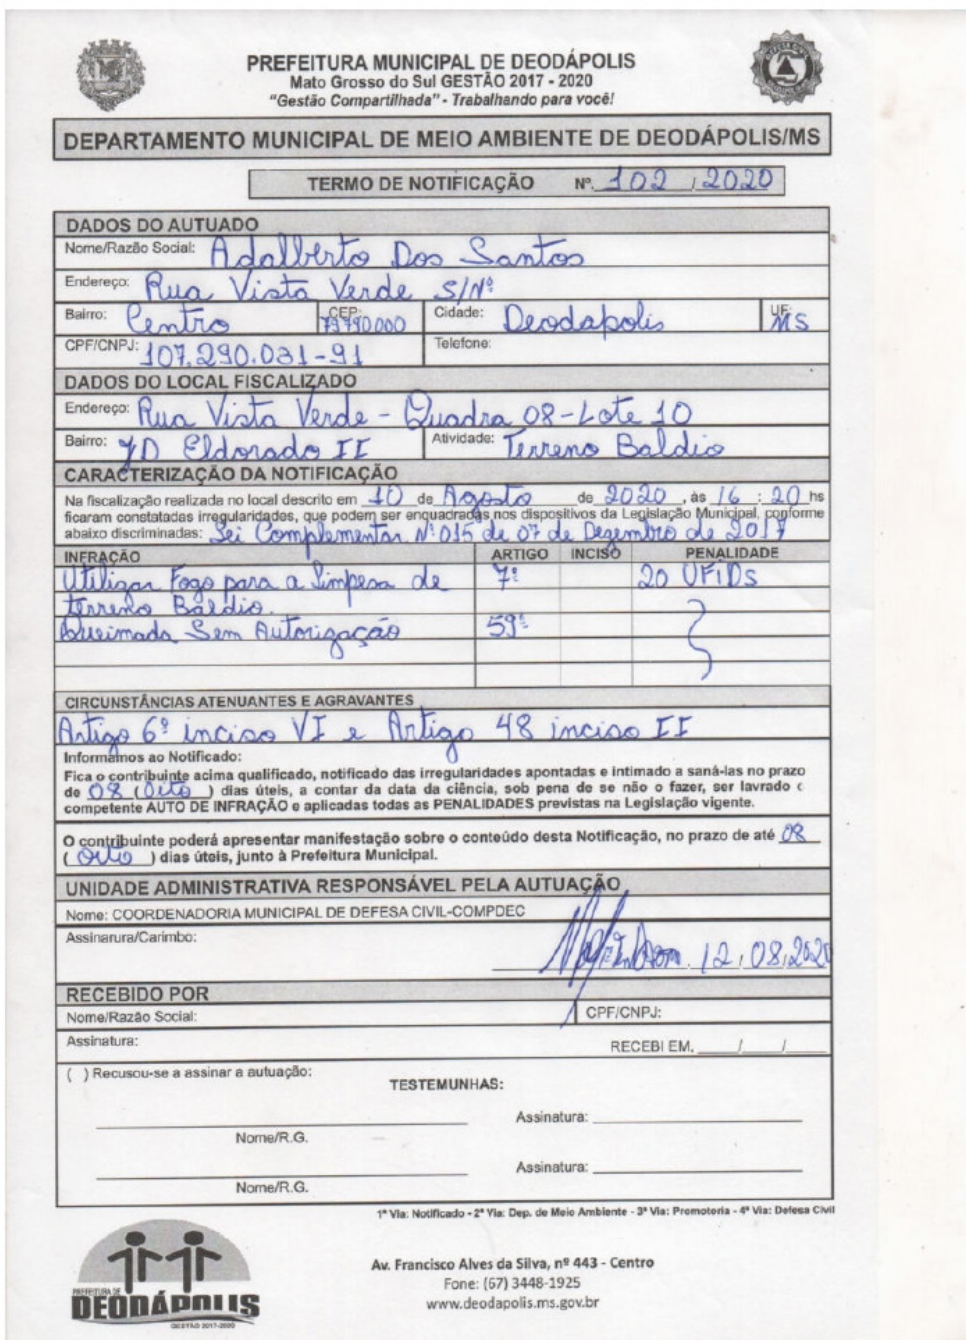 PREFEITURA MUNICIPAL DE DEODÁPOLIS
Mato Grosso do Sul GESTÃO 2017 - 2020
"Gestão Compartilhada" - Trabalhando para você!
DEPARTAMENTO MUNICIPAL DE MEIO AMBIENTE DE DEODÁPOLIS/MS
TERMO DE NOTIFICAÇÃO Nº. 102 / 2020
DADOS DO AUTUADO
Nome/Razão Social: Adalberto Dos Santos
Endereço: Rua Vista Verde S/Nº
Bairro: Centro CEP: 79790000 Cidade: Deodapolis UF: MS
CPF/CNPJ: 107.290.031-91 Telefone:
DADOS DO LOCAL FISCALIZADO
Endereço: Rua Vista Verde - Quadra 08 - Lote 10
Bairro: JD Eldorado II Atividade: Terreno Baldio
CARACTERIZAÇÃO DA NOTIFICAÇÃO
Na fiscalização realizada no local descrito em 10 de Agosto de 2020, às 16 : 20 hs
ficaram constatadas irregularidades, que podem ser enquadradas nos dispositivos da Legislação Municipal, conforme
abaixo discriminadas: Lei Complementar Nº 015 de 07 de Dezembro de 2017
INFRAÇÃO ARTIGO INCISO PENALIDADE
Utilizar Fogo para a Limpesa de 7º 20 UFIDs
terreno Baldio.
Queimada Sem Autorização 59º
CIRCUNSTÂNCIAS ATENUANTES E AGRAVANTES
Artigo 6º inciso VI e Artigo 48 inciso II
Informamos ao Notificado:
Fica o contribuinte acima qualificado, notificado das irregularidades apontadas e intimado a saná-las no prazo
de 08 (Oito) dias úteis, a contar da data da ciência, sob pena de se não o fazer, ser lavrado c
competente AUTO DE INFRAÇÃO e aplicadas todas as PENALIDADES previstas na Legislação vigente.
O contribuinte poderá apresentar manifestação sobre o conteúdo desta Notificação, no prazo de até 08
(Oito) dias úteis, junto à Prefeitura Municipal.
UNIDADE ADMINISTRATIVA RESPONSÁVEL PELA AUTUAÇÃO
Nome: COORDENADORIA MUNICIPAL DE DEFESA CIVIL-COMPDEC
Assinarura/Carimbo:
12,08,2020
RECEBIDO POR
Nome/Razão Social: CPF/CNPJ:
Assinatura: RECEBI EM, ____/____/____
( ) Recusou-se a assinar a autuação:
TESTEMUNHAS:
Assinatura:
Nome/R.G.
Assinatura:
Nome/R.G.
1ª Via: Notificado - 2ª Via: Dep. de Meio Ambiente - 3ª Via: Promotoria - 4ª Via: Defesa Civil
PREFEITURA DE
DEODÁPOLIS
GESTÃO 2017-2020
Av. Francisco Alves da Silva, nº 443 - Centro
Fone: (67) 3448-1925
www.deodapolis.ms.gov.br